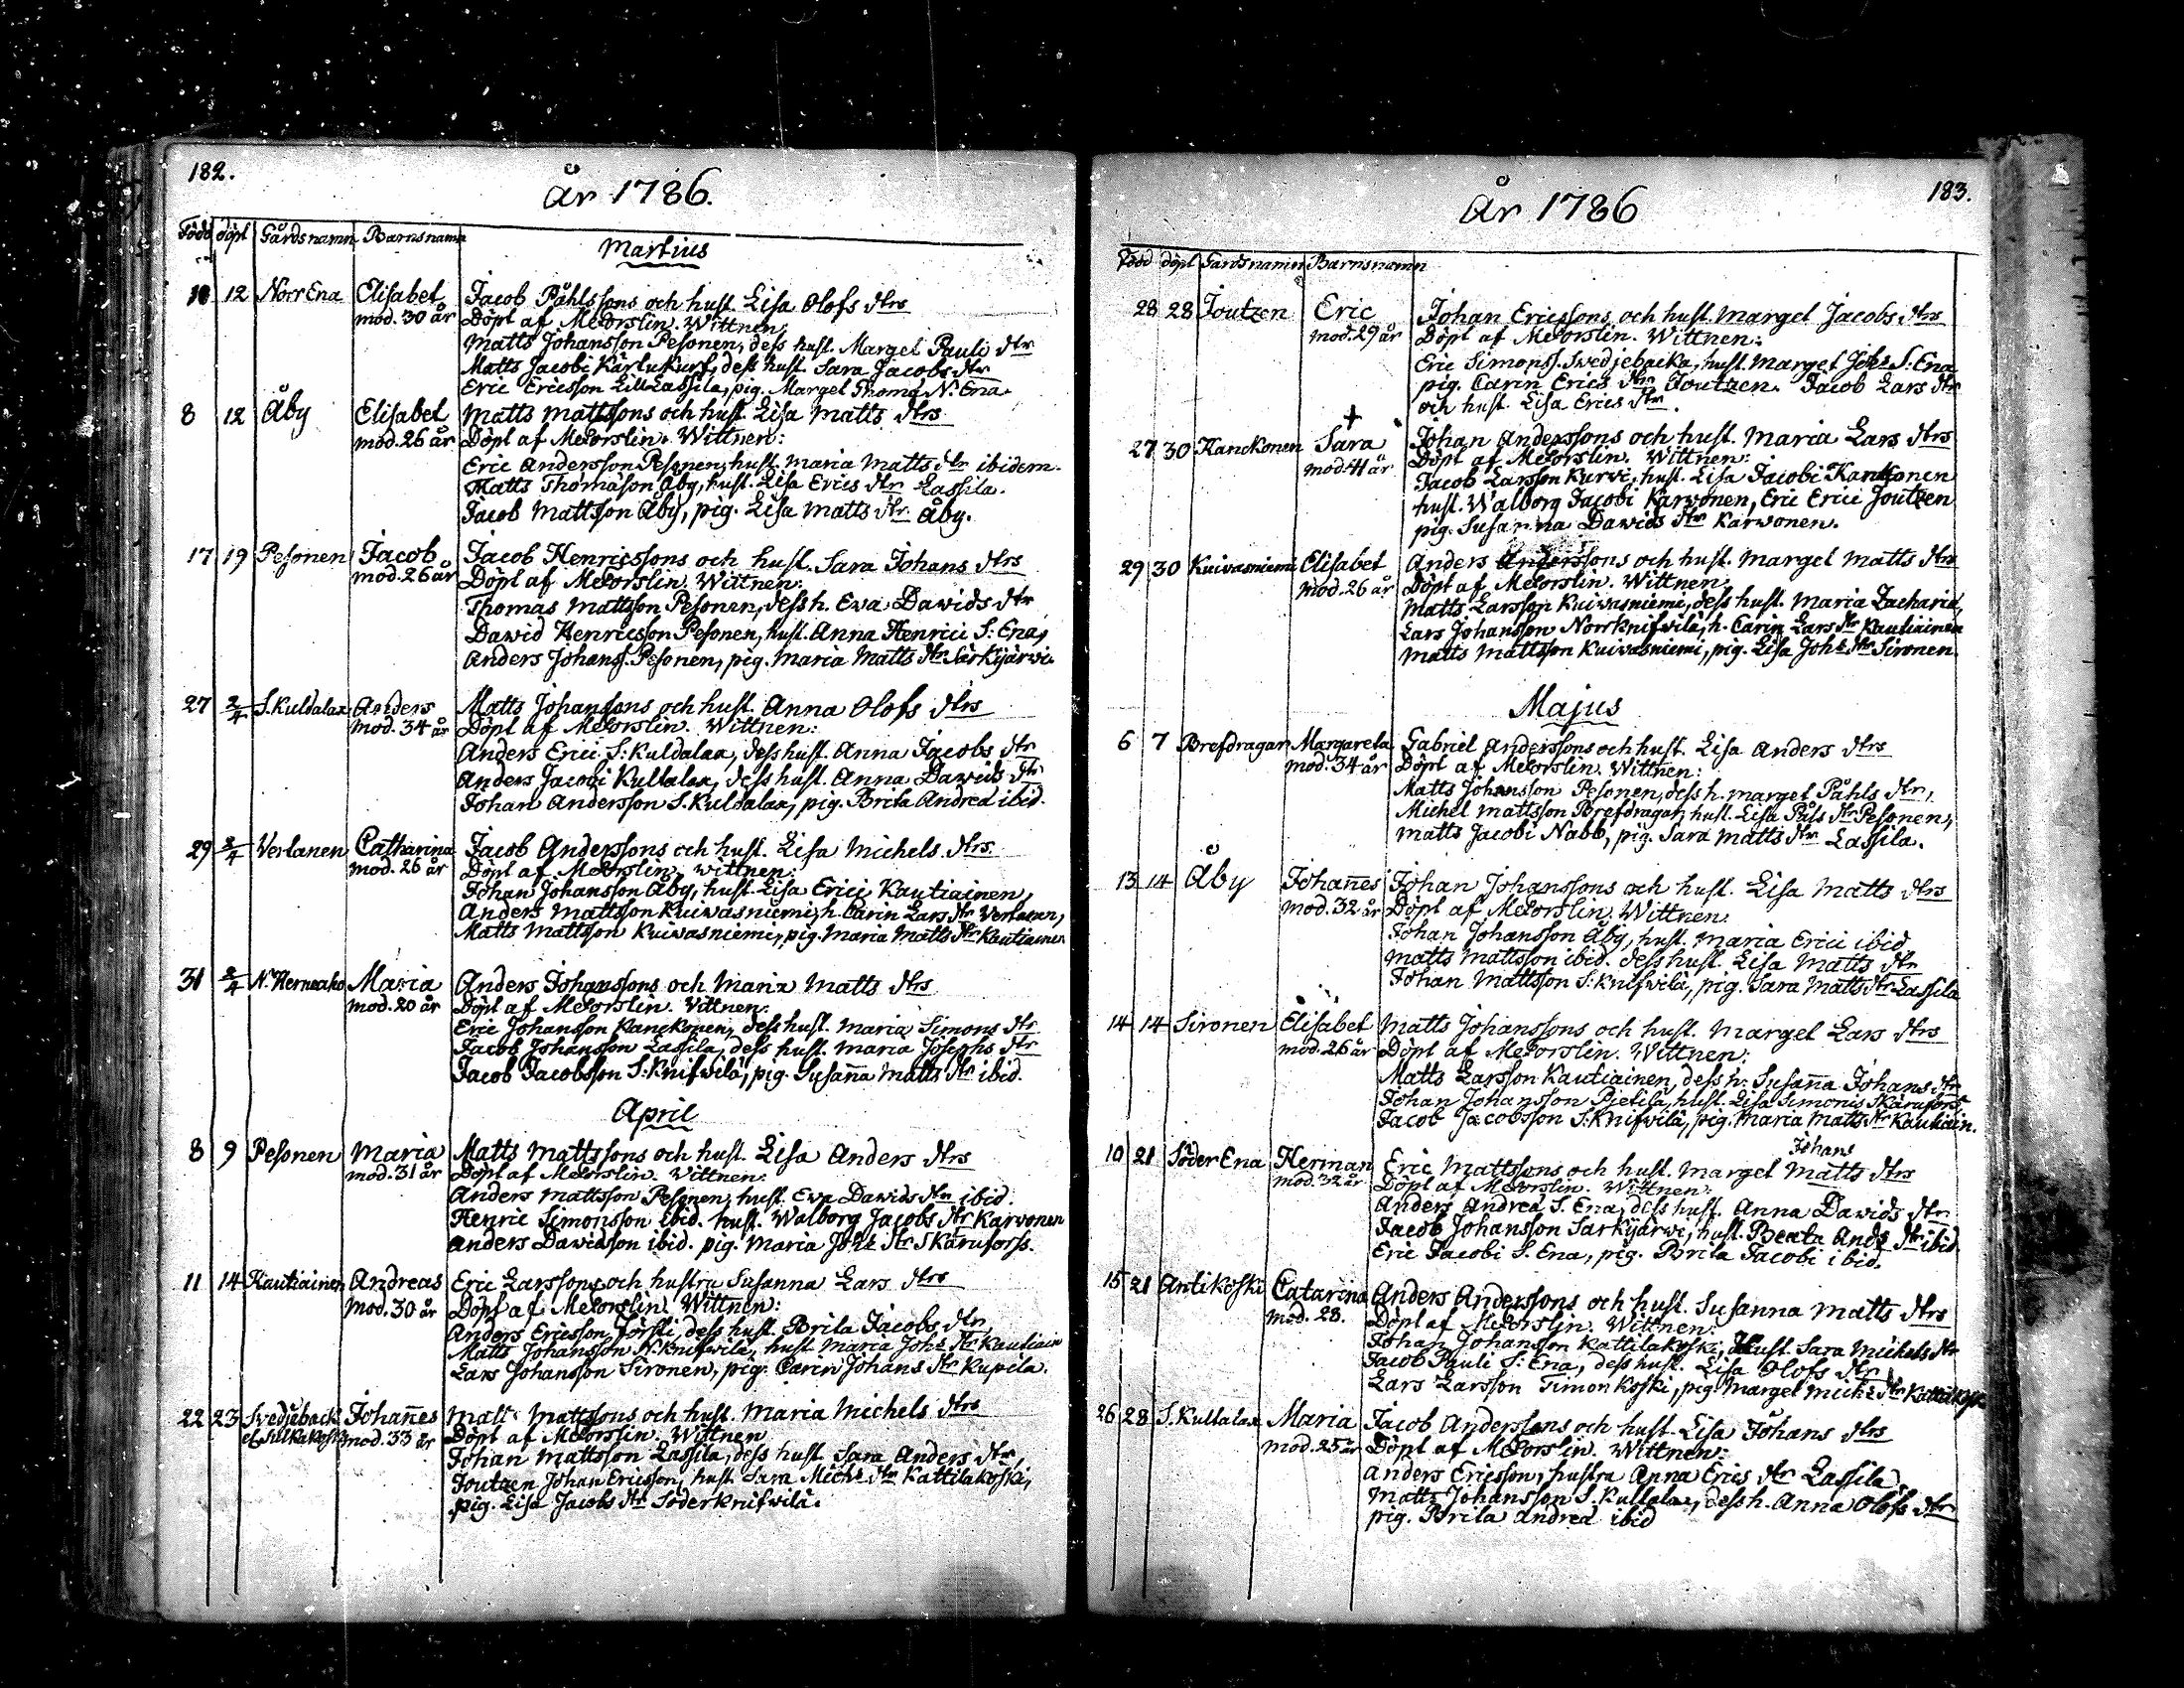 182.
År 1786.
Född döpt Gårdsnamn Barnsnamn
Martius
10 12 Norr Ena Elisabet Jacob Påhlssons och hust. Lisa Olofs dtrs
mod. 30 år Döpt af Meorslin. Wittnen;
Matts Johansson Pesonen, dess hust. Marget Pauli dtr
Matts Jacobi Karlukurf, dess hust. Sara Jacobs dtr
Eric Ericsson Lill Lassila, pig. Marget Thomæ N. Ena.
8 12 Åby Elisabet Matts Mattssons och hust. Lisa Matts dtrs
mod. 26 år Döpt af Meorslin. Wittnen:
Eric Andersson Pesonen, hust. Maria Matts dtr ibidem.
Matts Thomasson Åby, hust. Lisa Erics dtr Lassila.
Jacob Mattsson Åby, pig. Lisa Matts dtr Åby.
17 19 Pesonen Jacob Jacob Henricssons och hust. Sara Johans dtrs
mod. 26 år Döpt af Meorslin. Wittnen:
Thomas Mattsson Pesonen, dess h. Eva Dawids dtr
Dawid Henricsson Pesonen, hust. Anna Henrici S: Ena,
Anders Johanss. Pesonen, pig. Maria Matts dtr Särkijärwi.
27 2/4 S. Kuldalax Anders Matts Johanssons och hust. Anna Olofs dtrs
mod. 34 år Döpt af Meorslin. Wittnen:
Anders Erici S: Kuldalax, dess hust. Anna Jacobs dtr
Anders Jacobi Kultalax, dess hust. Anna Dawids dtr
Johan Andersson S. Kuldalax, pig. Brita Andreæ ibid.
29 2/4 Verlanen Catharina Jacob Anderssons och hust. Lisa Michels dtrs.
mod. 26 år Döpt af Meorslin. wittnen:
Johan Johansson Åby, hust. Lisa Erici Kautiainen,
Anders Mattsson Kuiwasniemi, h. Carin Lars dtr Verlanen,
Matts Mattsson Kuiwasniemi, pig. Maria Matts dtr Kautiainen
31 2/4 N. Herneaho Maria Anders Johanssons och Maria Matts dtrs
mod. 20 år Döpt af Meorslin. Vittnen:
Eric Johansson Kanckonen, dess hust. Maria Simons dtr
Jacob Johansson Lassila, dess hust. Maria Josephs dtr
Jacob Jacobsson S: Knifwilä, pig. Susan̄a Matts dtr ibid.
April
8 9 Pesonen Maria Matts Mattssons och hust. Lisa Anders dtrs
mod. 31 år Döpt af Meorslin. Vittnen:
Anders Mattsson Pesonen, hust. Eva Dawids dtr ibid.
Henric Simonsson ibid. hust. Walborg Jacobs dtr Karvonen
Anders Dawidson ibid. pig. Maria Johs dtr Skärufors.
11 14 Kautiainen Andreas Eric Larssons och hustru Susanna Lars dtrs
mod. 30 år Döpt af Meorslin. Wittnen:
Anders Ericsson Jörsti, dess hust. Brita Jacobs dtr
Matts Johansson N. Knifwila, hust. Maria Johs dtr Kautiain
Lars Johansson Sironen, pig. Carin Johans dtr Kupila.
22 23 Svedjeback Johan̄es Matts Mattssons och hust. Maria Michels dtrs
mod. 33 år Döpt af Meorslin. Wittnen
Johan Mattsson Lassila, dess hust. Sara Anders dtr,
Joutzen Johan Ericsson, hust. Sara Michs dtr Kattilakoski,
pig. Lisa Jacobs dtr Söderknifwilä.
År 1786
183.
Född döpt Gårdsnamn Barnsnamn
28 28 Joutzen Eric Johan Ericssons och hust. Marget Jacobs dtrs
mod. 29 år Döpt af Meorslin. Wittnen:
Eric Simonss. Svedjebacka, hust. Marget Johs S. Ena
pig. Carin Erics dtr Joutzen. Jacob Lars dtr
och hust. Lisa Erics dtr.
27 30 Kanckonen Sara Johan Anderssons och hust. Maria Lars dtrs
mod. 41 år Döpt af Meorslin. Wittnen:
Jacob Larsson Kurvi, hust. Lisa Jacobi Kanckonen
hust. Walborg Jacobi Karwonen, Eric Erici Joutzen
pig. Susanna Dawids dtr Karwonen.
29 30 Kuivasniemi Elisabet Anders Anderssons och hust. Marget Matts dtrs
mod. 26 år Döpt af Meorslin. Wittnen.
Matts Larsson Kuiwasniemi, dess hust. Maria Zachariæ,
Lars Johansson Norrknifwilä, h. Carin Lars dtr Kautiainen
Matts Mattsson Kuiwasniemi, pig. Lisa Johs dtr Sironen.
Majus
6 7 Brefdragar Margareta Gabriel Anderssons och hust. Lisa Anders dtrs
mod. 34 år Döpt af Meorslin. Wittnen:
Matts Johansson Pesonen, dess h. Marget Påhls dtr,
Michel Mattsson Brefdragar, hust. Lisa Påls dtr Pesonen,
Matts Jacobi Nabb, pig. Sara Matts dtr Lassila.
13 14 Åby Johan̄es Johan Johanssons och hust. Lisa Matts dtrs
mod. 32 år Döpt af Meorslin. Wittnen.
Johan Johansson Åby, hust. Maria Erici ibid
Matts Mattsson ibid. dess hust. Lisa Matts dtr
Johan Mattsson S: Knifwilä, pig. Sara Matts dtr Lassila
14 14 Sironen Elisabet Matts Johanssons och hust. Marget Lars dtrs
mod. 26 år Döpt af Meorslin. Wittnen.
Matts Larsson Kautiainen, dess h: Susan̄a Johans dtr
Johan Johansson Pietila, hust. Lisa Simonis Skärufors,
Jacob Jacobsson S: Knifvilä, pig. Maria Matts dtr Kautiain.
Johans
10 21 Söder Ena Herman Eric Mattssons och hust. Marget Matts dtrs
mod. 32 år Döpt af Meorslin. Wittnen.
Anders Andreæ S. Ena, dess hust. Anna Dawids dtr
Jacob Johansson Sarkijarwi, hust. Beata Ands dtr ibid.
Eric Jacobi S. Ena, pig. Brita Jacobi ibid.
15 21 Antikoski Catarina Anders Anderssons och hust. Susanna Matts dtrs
mod. 28. Döpt af Meorslin. Wittnen:
Johan Johansson Kattilakoski, hust. Sara Michels dtr
Jacob Pauli S: Ena, dess hust. Lisa Olofs dtr
Lars Larsson Timonkoski, pig. Marget Michs dtr
26 28 S. Kultalax Maria Jacob Anderssons och hust. Lisa Johans dtrs
mod. 25 år Döpt af Meorslin. Wittnen:
Anders Ericsson, hustru Anna Erics dtr Lassila,
Matts Johansson S. Kultalax, dess h. Anna Olofs dtr
pig. Brita Andreæ ibid